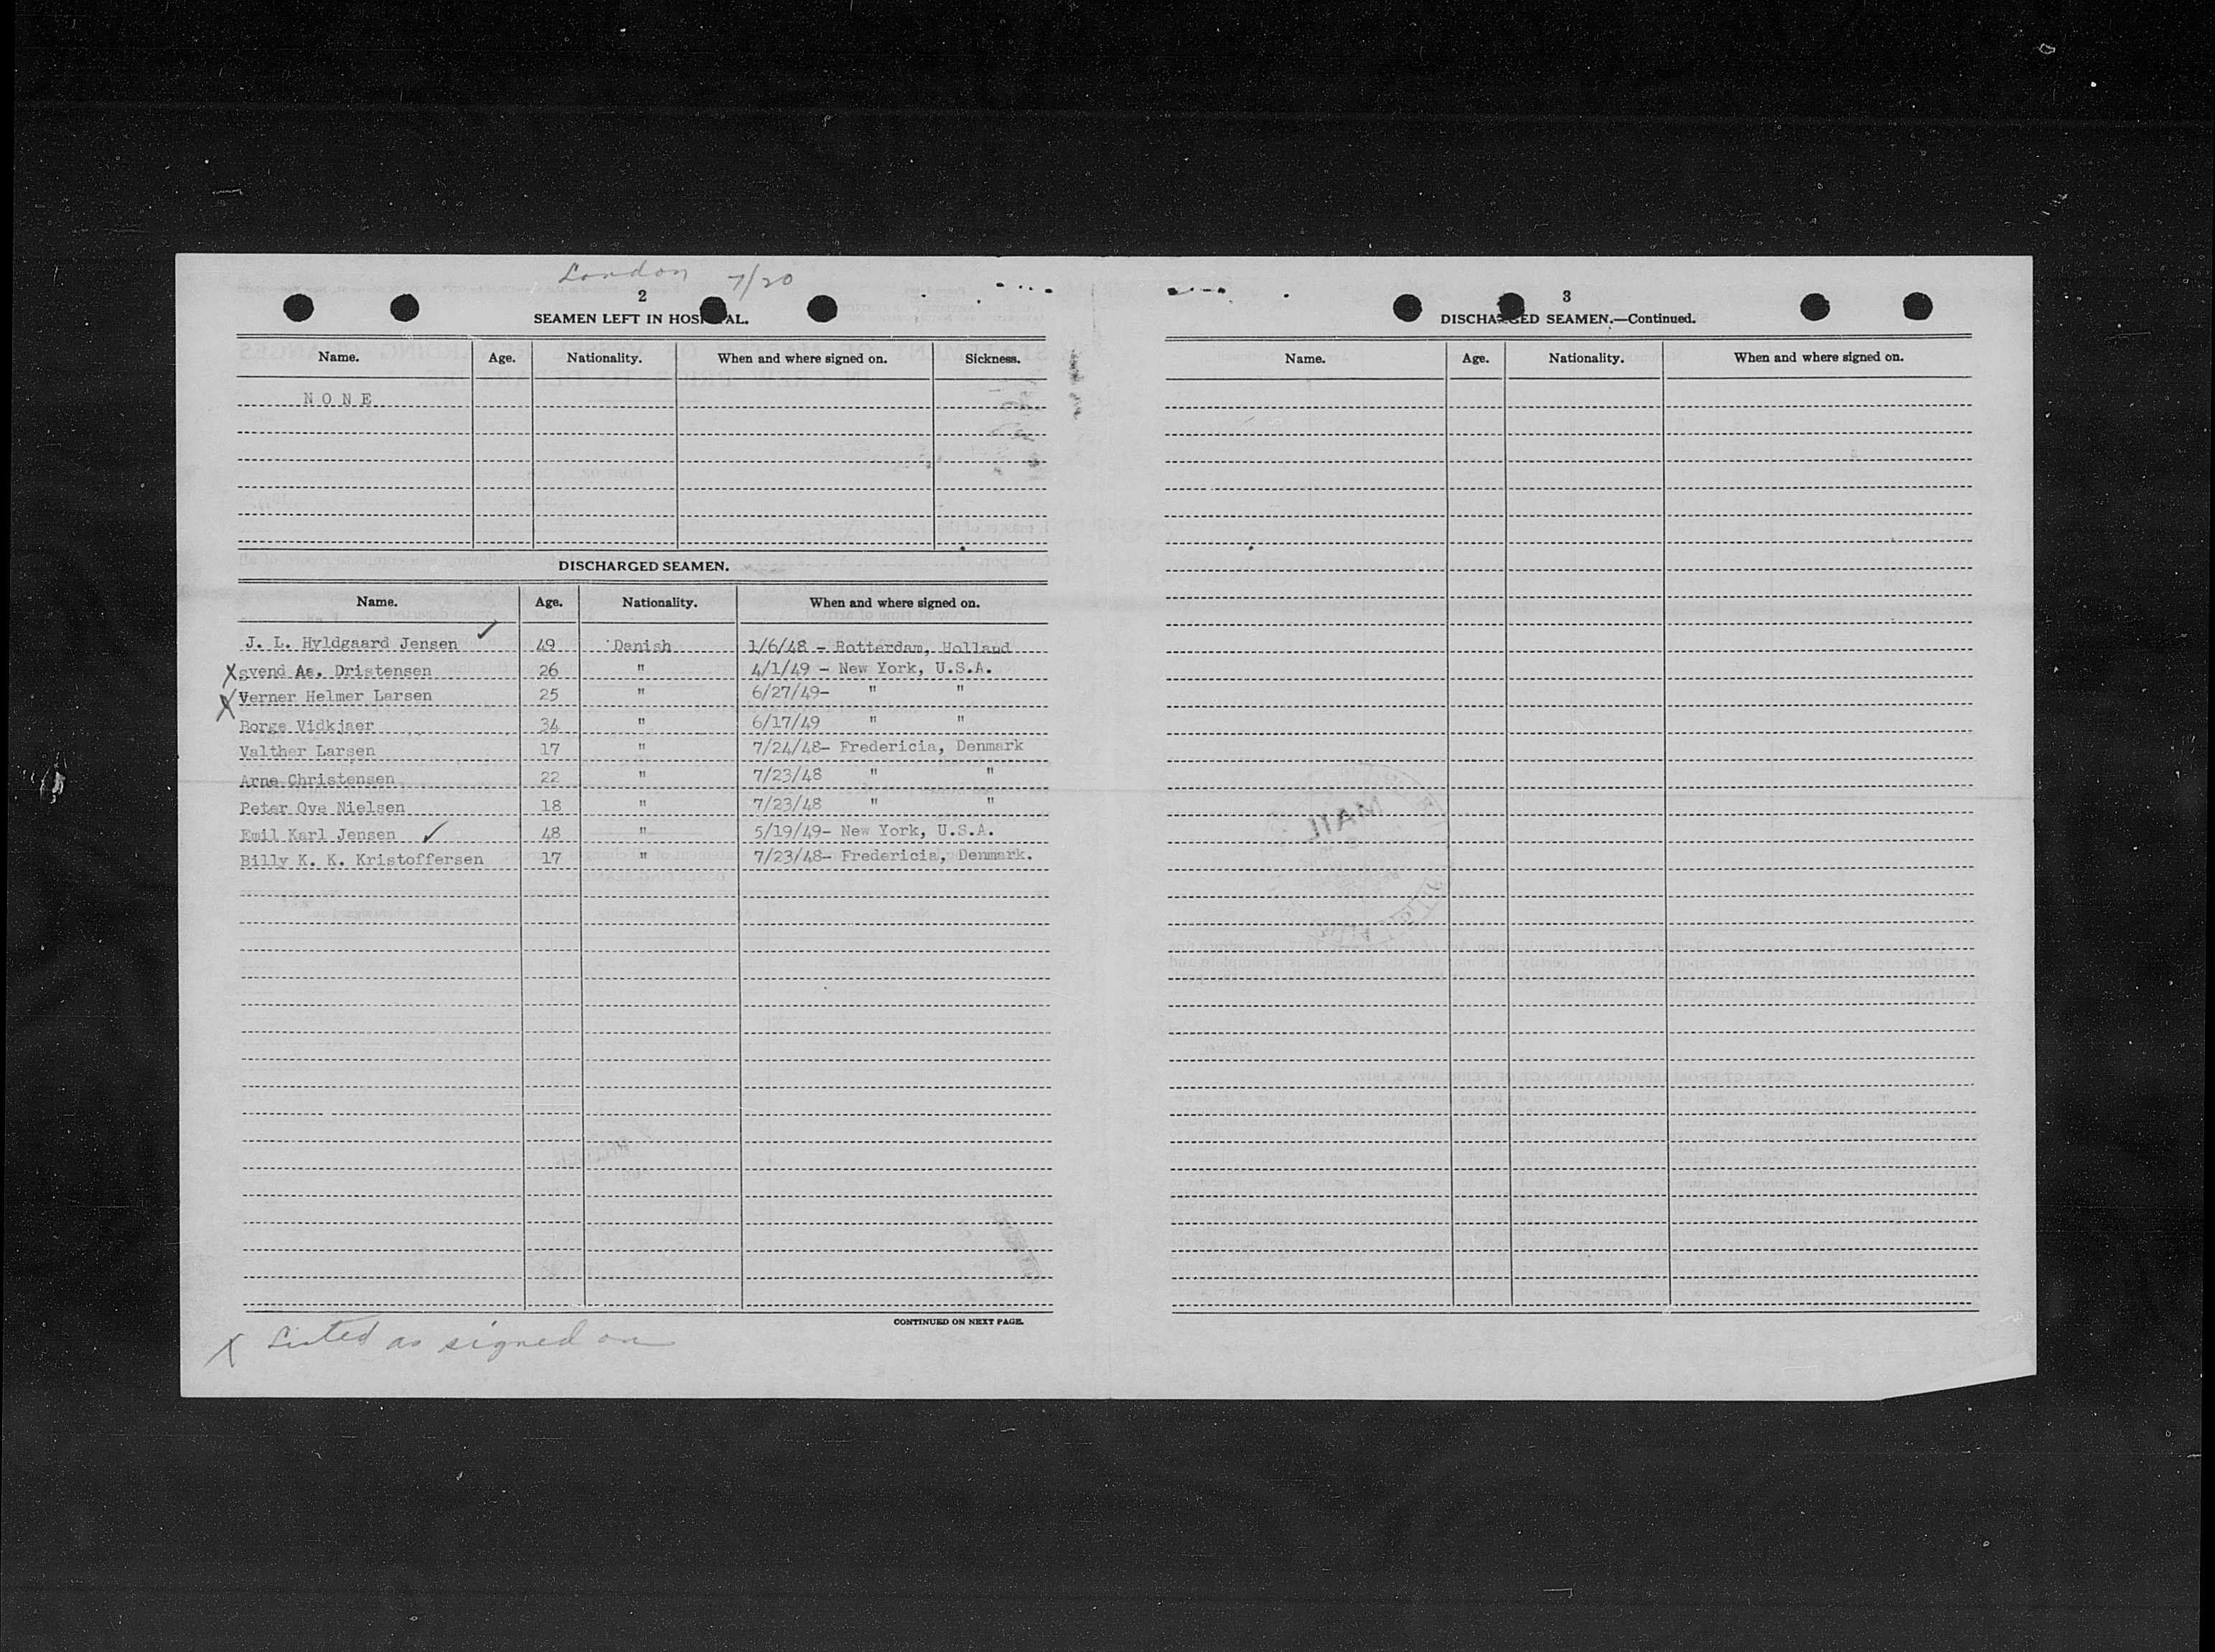 London 7/20
2
SEAMEN LEFT IN HOSPITAL.
Name. Age. Nationality. When and where signed on. Sickness.
NONE
DISCHARGED SEAMEN.
Name. Age. Nationality. When and where signed on.
J. L. Hyldgaard Jensen ✓ 49 Danish 1/6/48 - Rotterdam, Holland
X Svend Aa. Dristensen 26 " 4/1/49 - New York, U.S.A.
X Verner Helmer Larsen 25 " 6/27/49- " "
Borge Vidkjaer 34 " 6/17/49 " "
Valther Larsen 17 " 7/24/48- Fredericia, Denmark
Arne Christensen 22 " 7/23/48 " "
Peter Ove Nielsen 18 " 7/23/48 " "
Emil Karl Jensen ✓ 48 " 5/19/49- New York, U.S.A.
Billy K. K. Kristoffersen 17 " 7/23/48- Fredericia, Denmark.
CONTINUED ON NEXT PAGE.
X Listed as signed on
3
DISCHARGED SEAMEN.—Continued.
Name. Age. Nationality. When and where signed on.
MAIL